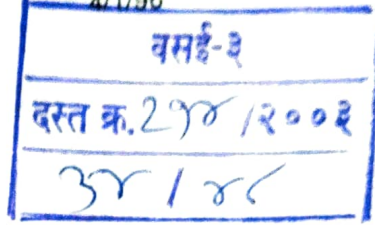 वसई-३
दस्त क्र. २१४ / २००३
३४ / ४८